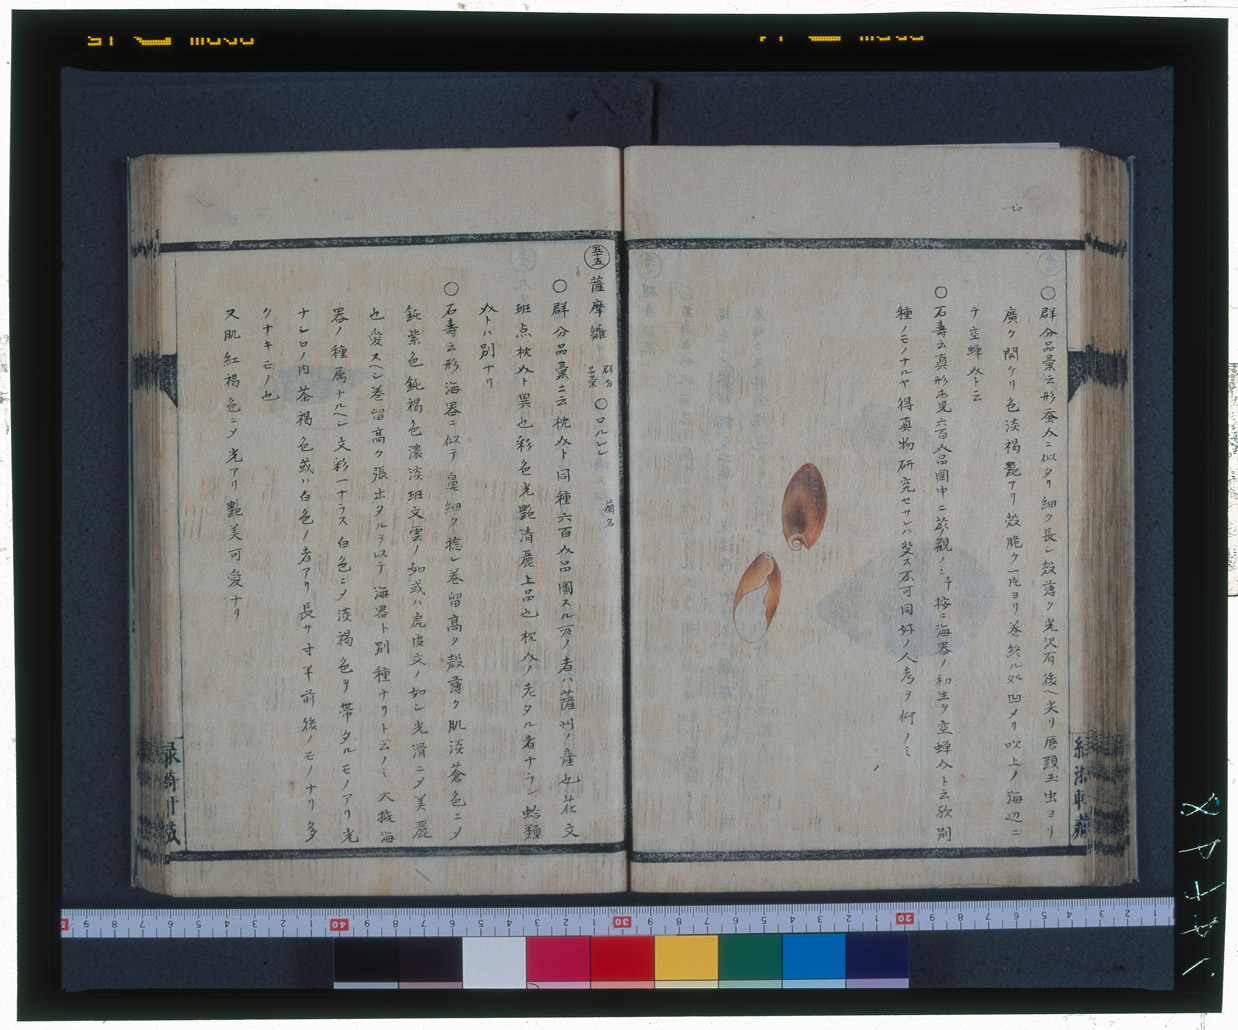 ○群分品彙云形蚕㕝ニ似タリ細ク長シ殻薄ク光沢有後ヘ尖リ唇頭玉虫ヨリ
廣ク開ケリ色淡褐艶アリ殻脆ク一片ヨリ巻終ル処凹メリ吹上ノ海辺ニ
テ空蝉㕝ト云
○石壽云真形未見六百㕝品圖中ニ於觀ノミ予按ニ海器ノ初生ヲ空蝉㕝ト云歟別
種ノモノナルヤ得真物研究セサレハ決ス不可同好ノ人考ヲ仰ノミ
緑漪軒藏
五十五 薩摩雛 群分品彙 ○ロルレン 蘭名
○群分品彙ニ云枕㕝ト同種六百㕝品圖スル所ノ者ハ薩州ノ産也花文
班点枕㕝ト異也彩色光艶清麗上品也枕㕝ノ老タル者ナラン蛤類
㕝トハ別ナリ
○石壽云形海器ニ似テ臭細ク捻シ巻留高ク殻薄ク肌淡蒼色ニメ
鈍紫色鈍褐色濃淡班文雲ノ如或ハ虎皮文ノ如シ光滑ニメ美麗
也愛スヘシ巻留高ク張出タルヲ以テ海器ト別種ナリト云ノミ大抵海
器ノ種属ナルヘシ文彩一ナラス白色ニメ淡褐色ヲ帯タルモノアリ光
ナシロノ内茶褐色或ハ白色ノ者アリ長サ寸半前後ノモノナリ多
クナキモノ也
又肌紅褐色ニメ光アリ艶美可愛ナリ
緑漪軒藏